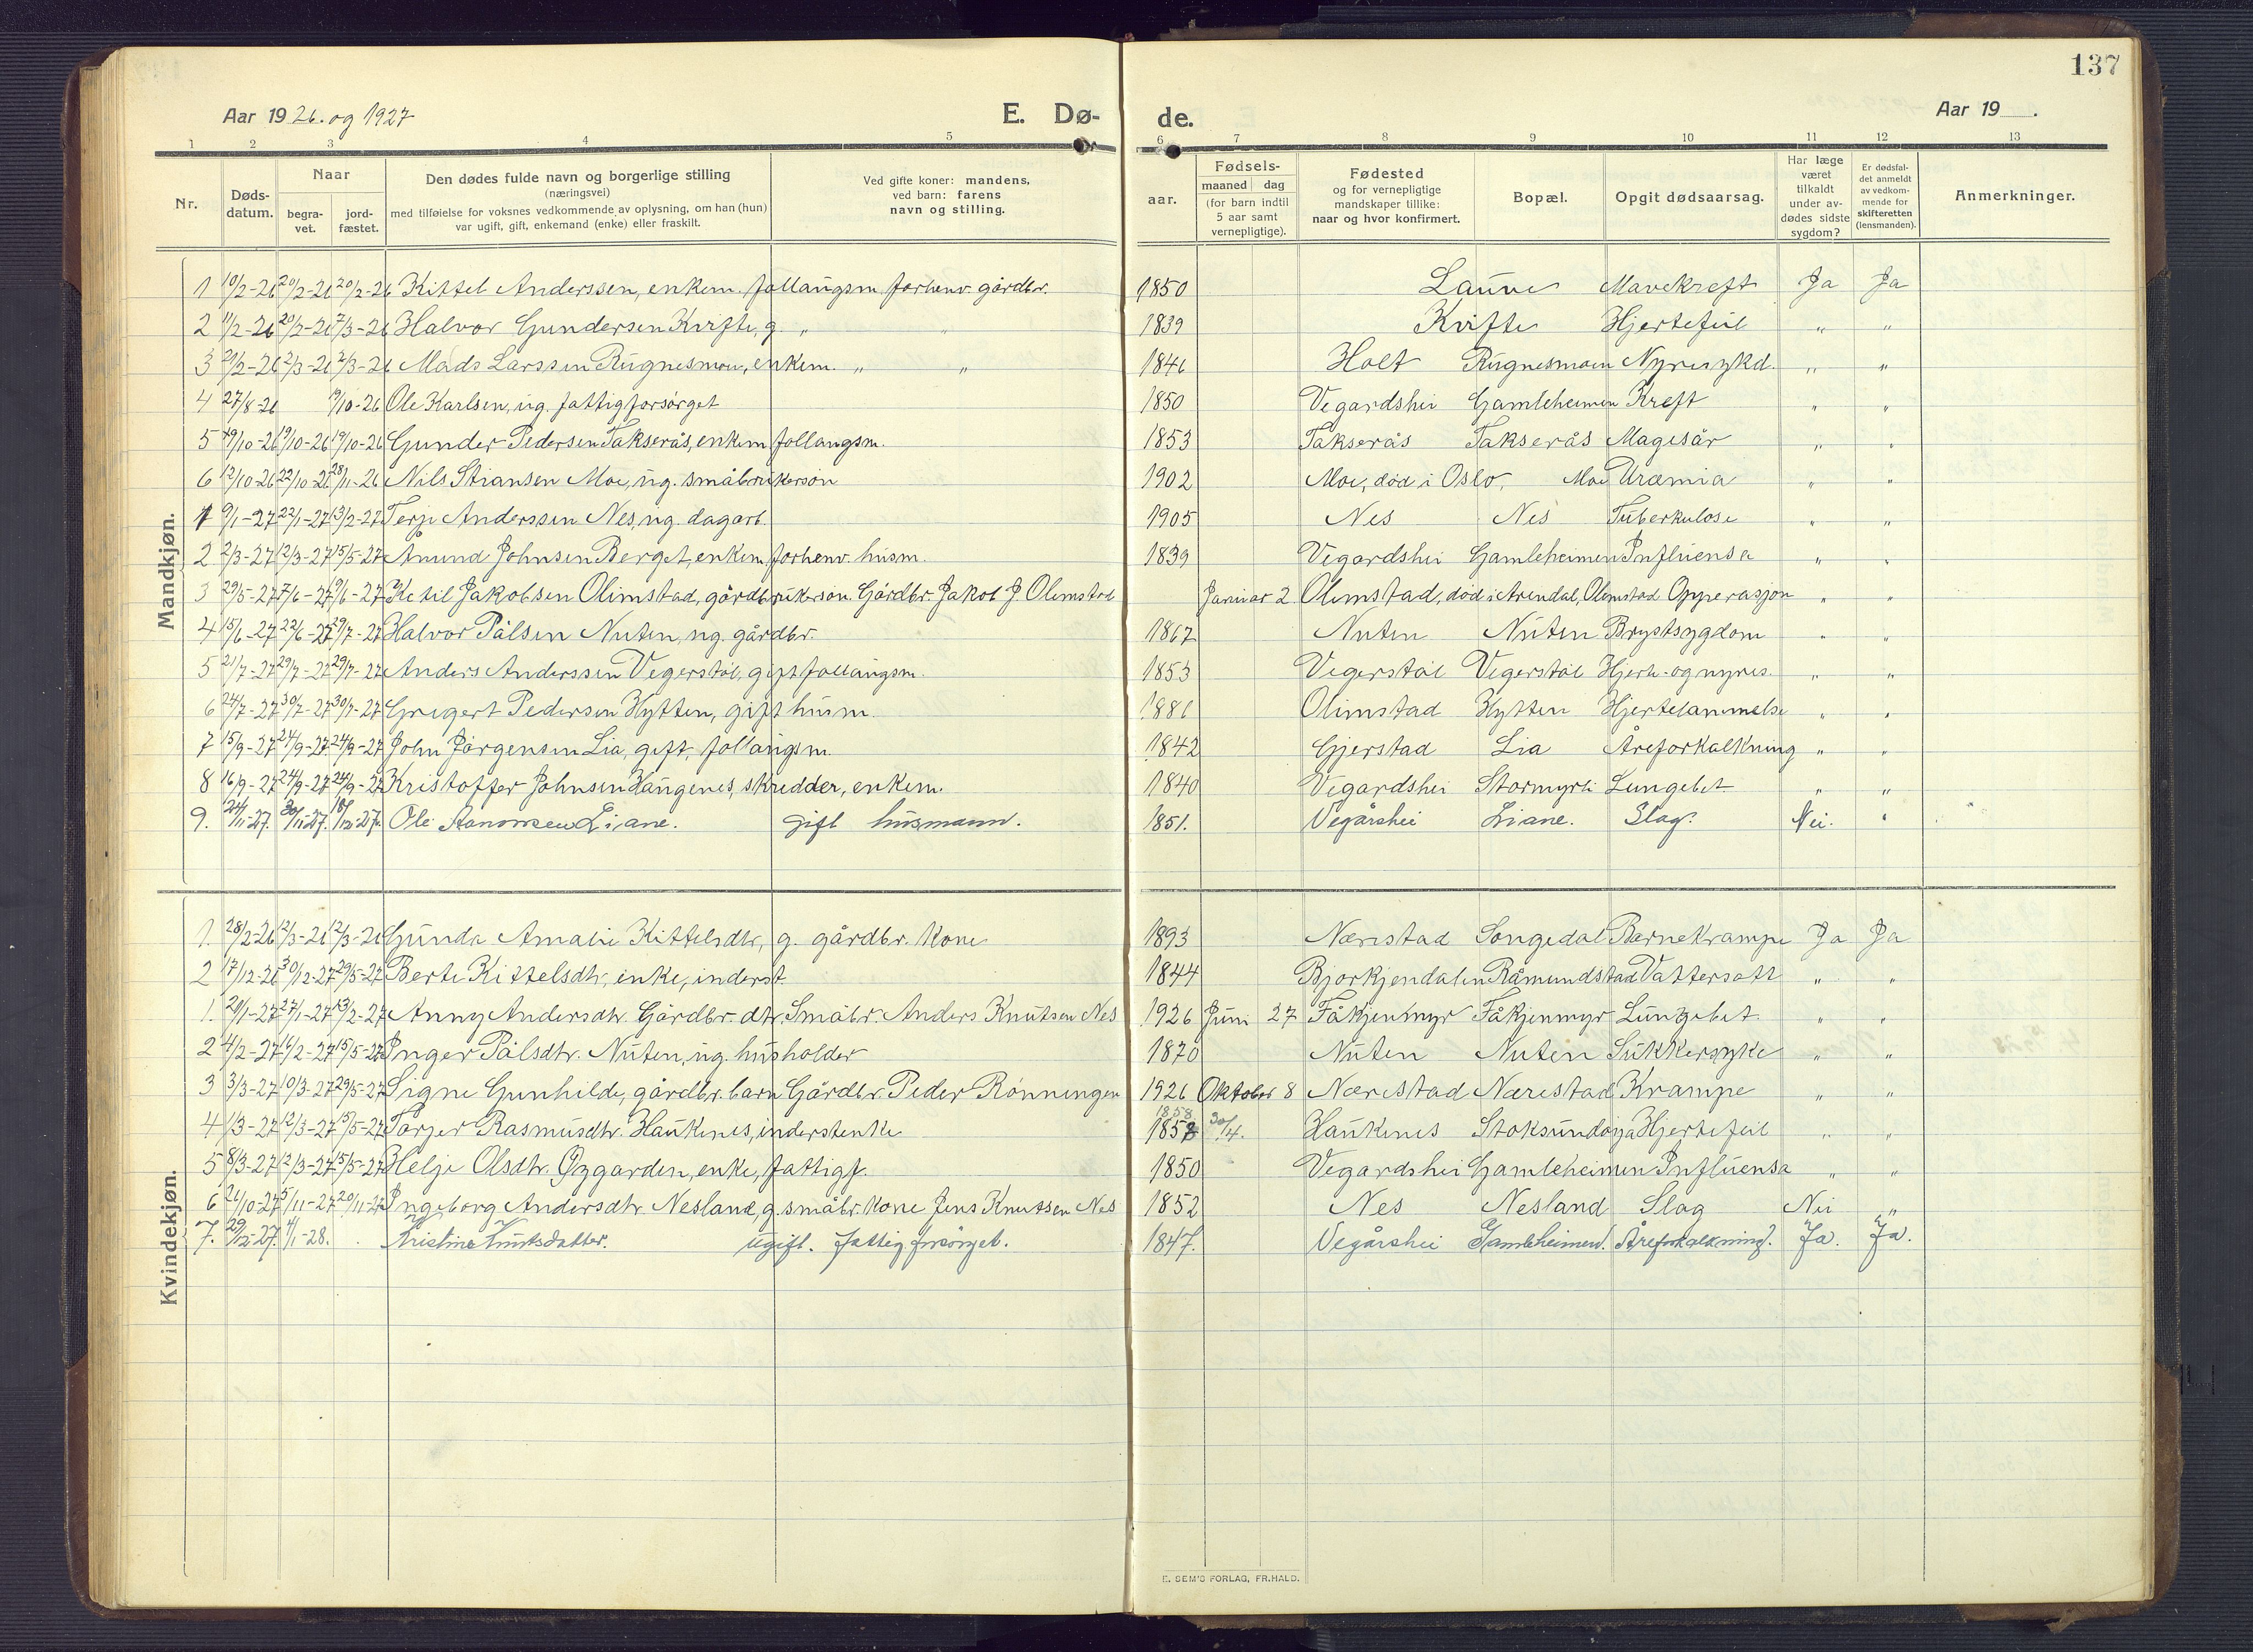 137
Aar 1926. og 1927
E. Dø-
de.
Aar 19 .
1 2 3 4 5 6 7 8 9 10 11 12 13
Nr. Døds-datum. Naar begra-vet. jord-fæstet. Den dødes fulde navn og borgerlige stilling (næringsvei) med tilføielse for voksnes vedkommende av oplysning, om han (hun) var ugift, gift, enkemand (enke) eller fraskilt. Ved gifte koner: mandens, ved barn: farens navn og stilling. aar. Fødsels- maaned dag (for barn indtil 5 aar samt vernepligtige). Fødested og for vernepligtige mandskaper tillike: naar og hvor konfirmert. Bopæl. Opgit dødsaarsag. Har læge været tilkaldt under av-dødes sidste sygdom? Er dødsfal-det anmeldt av vedkom-mende for skifteretten (lensmanden). Anmerkninger.
Mandkjøn.
1 10/2-26 20/2-26 20/2-26 Kittel Anderssen, enkem. follaugsm. forhenv. gårdbr. 1850 Lauve Mavekreft Ja Ja
2 11/2-26 20/2-26 7/3-26 Halvor Gundersen Kvifte, g. " " 1839 Kvifte Hjertefeil " "
3 2/3-26 2/3-26 Mads Larssen Rugnesmoen, enkem. " " 1846 Holt Rugnesmoen Nyresykd. " "
4 27/8-26 /10-26 Ole Karlsen, ug. fattigforsørget 1850 Vegardshei Gamleheimen Kreft " "
5 /10-26 19/10-26 19/10-26 Gunder Pedersen Takserås, enkem. follaugsm. 1853 Takserås Takserås Magesår " "
6 12/10-26 22/10-26 28/11-26 Nils Stiansen Moe, ug. småbrukersøn 1902 Moe, død i Oslo, Moe Uræmia " "
1 9/1-27 22/1-27 13/2-27 Terje Anderssen Nes, ug. dagarb. 1905 Nes Nes Tuberkulose " "
2 2/3-27 12/3-27 15/5-27 Amund Johnsen Berget, enkem. forhenv. husm. 1839 Vegardshei Gamleheimen Influensa " "
3 29/5-27 7/6-27 9/6-27 Ketil Jakobsen Olimstad, gårdbrukersøn Gårdbr. Jakob J. Olimstad Januar 2 Olimstad, død i Arendal, Olimstad Opperasjon " "
4 15/6-27 22/6-27 29/7-27 Halvor Pålsen Nuten, ug. gårdbr. 1867 Nuten Nuten Brystsygdom " "
5 21/7-27 29/7-27 29/7-27 Anders Anderssen Vegerstøl, gift follaugsm. 1853 Vegerstøl Vegerstøl Hjerte- og nyres. " "
6 24/7-27 30/7-27 30/7-27 Gregert Pedersen Hytten, gift husm. 1881 Olimstad Hytten Hjertelammelse " "
7 15/9-27 24/9-27 24/9-27 John Jørgensen Lia, gift, follaugsm. 1842 Gjerstad Lia Åreforkalkning " "
8 16/9-27 24/9-27 24/9-27 Kristoffer Johnsen Haugenes, skredder, enkem. 1840 Vegardshei Stormyrli Lungebet. " "
9. 24/11-27. 30/11-27. 18/12-27. Ole Liane. gift husmann. 1851. Vegårshei Liane. Slag. Nei. "
Kvindekjøn.
1. 28/2-26 12/3-26 12/3-26 Gunda Amalie Kittelsdtr, g. gårdbr. kone 1893 Nærestad Songedal Barnekrampe Ja Ja
2 17/12-26 30/12-27 29/5-27 Berte Kittelsdtr, enke, inderst. 1844 Bjorkjendalen Råmundstad Vattersott " "
1. 20/1-27 27/1-27 13/2-27 Anny Andersdtr. Gårdbr. dtr. Småbr. Anders Knutsen Nes 1926 Juni 27 Fåkjenmyr Fåkjenmyr Lungebet. " "
2 4/2-27 16/2-27 15/5-27 Inger Pålsdtr. Nuten, ug. husholder 1870 Nuten Nuten Sukkersyke " "
3 3/3-27 10/3-27 29/5-27 Signe Gunhilde, gårdbr. barn Gårdbr. Peder Rønningen 1926 Oktober 8 Nærestad Nærestad Krampe " "
4 1/3-27 12/3-27 15/5-27 Torjer Rasmusdtr. Haukenes, inderstenke 1858 1858 30/4. Haukenes Stoksundøya Hjertefeil " "
5 8/3-27 12/3-27 15/5-27 Helje Olsdtr. Øygarden, enke, fattigf. 1850 Vegardshei Gamleheimen Influensa " "
6 26/10-27 5/11-27 20/11-27 Ingeborg Andersdtr. Nesland, g. småbr. kone Jens Knutsen Nes 1852 Nes Nesland Slag Nei "
7. 29/12-27. 4/1-28. Kristine Knutsdatter. ugift. fattig forsørget. 1847. Vegårshei Gamleheimen. Åreforkalkning. Ja. Ja.
E. SEM'S FORLAG, FR.HALD.